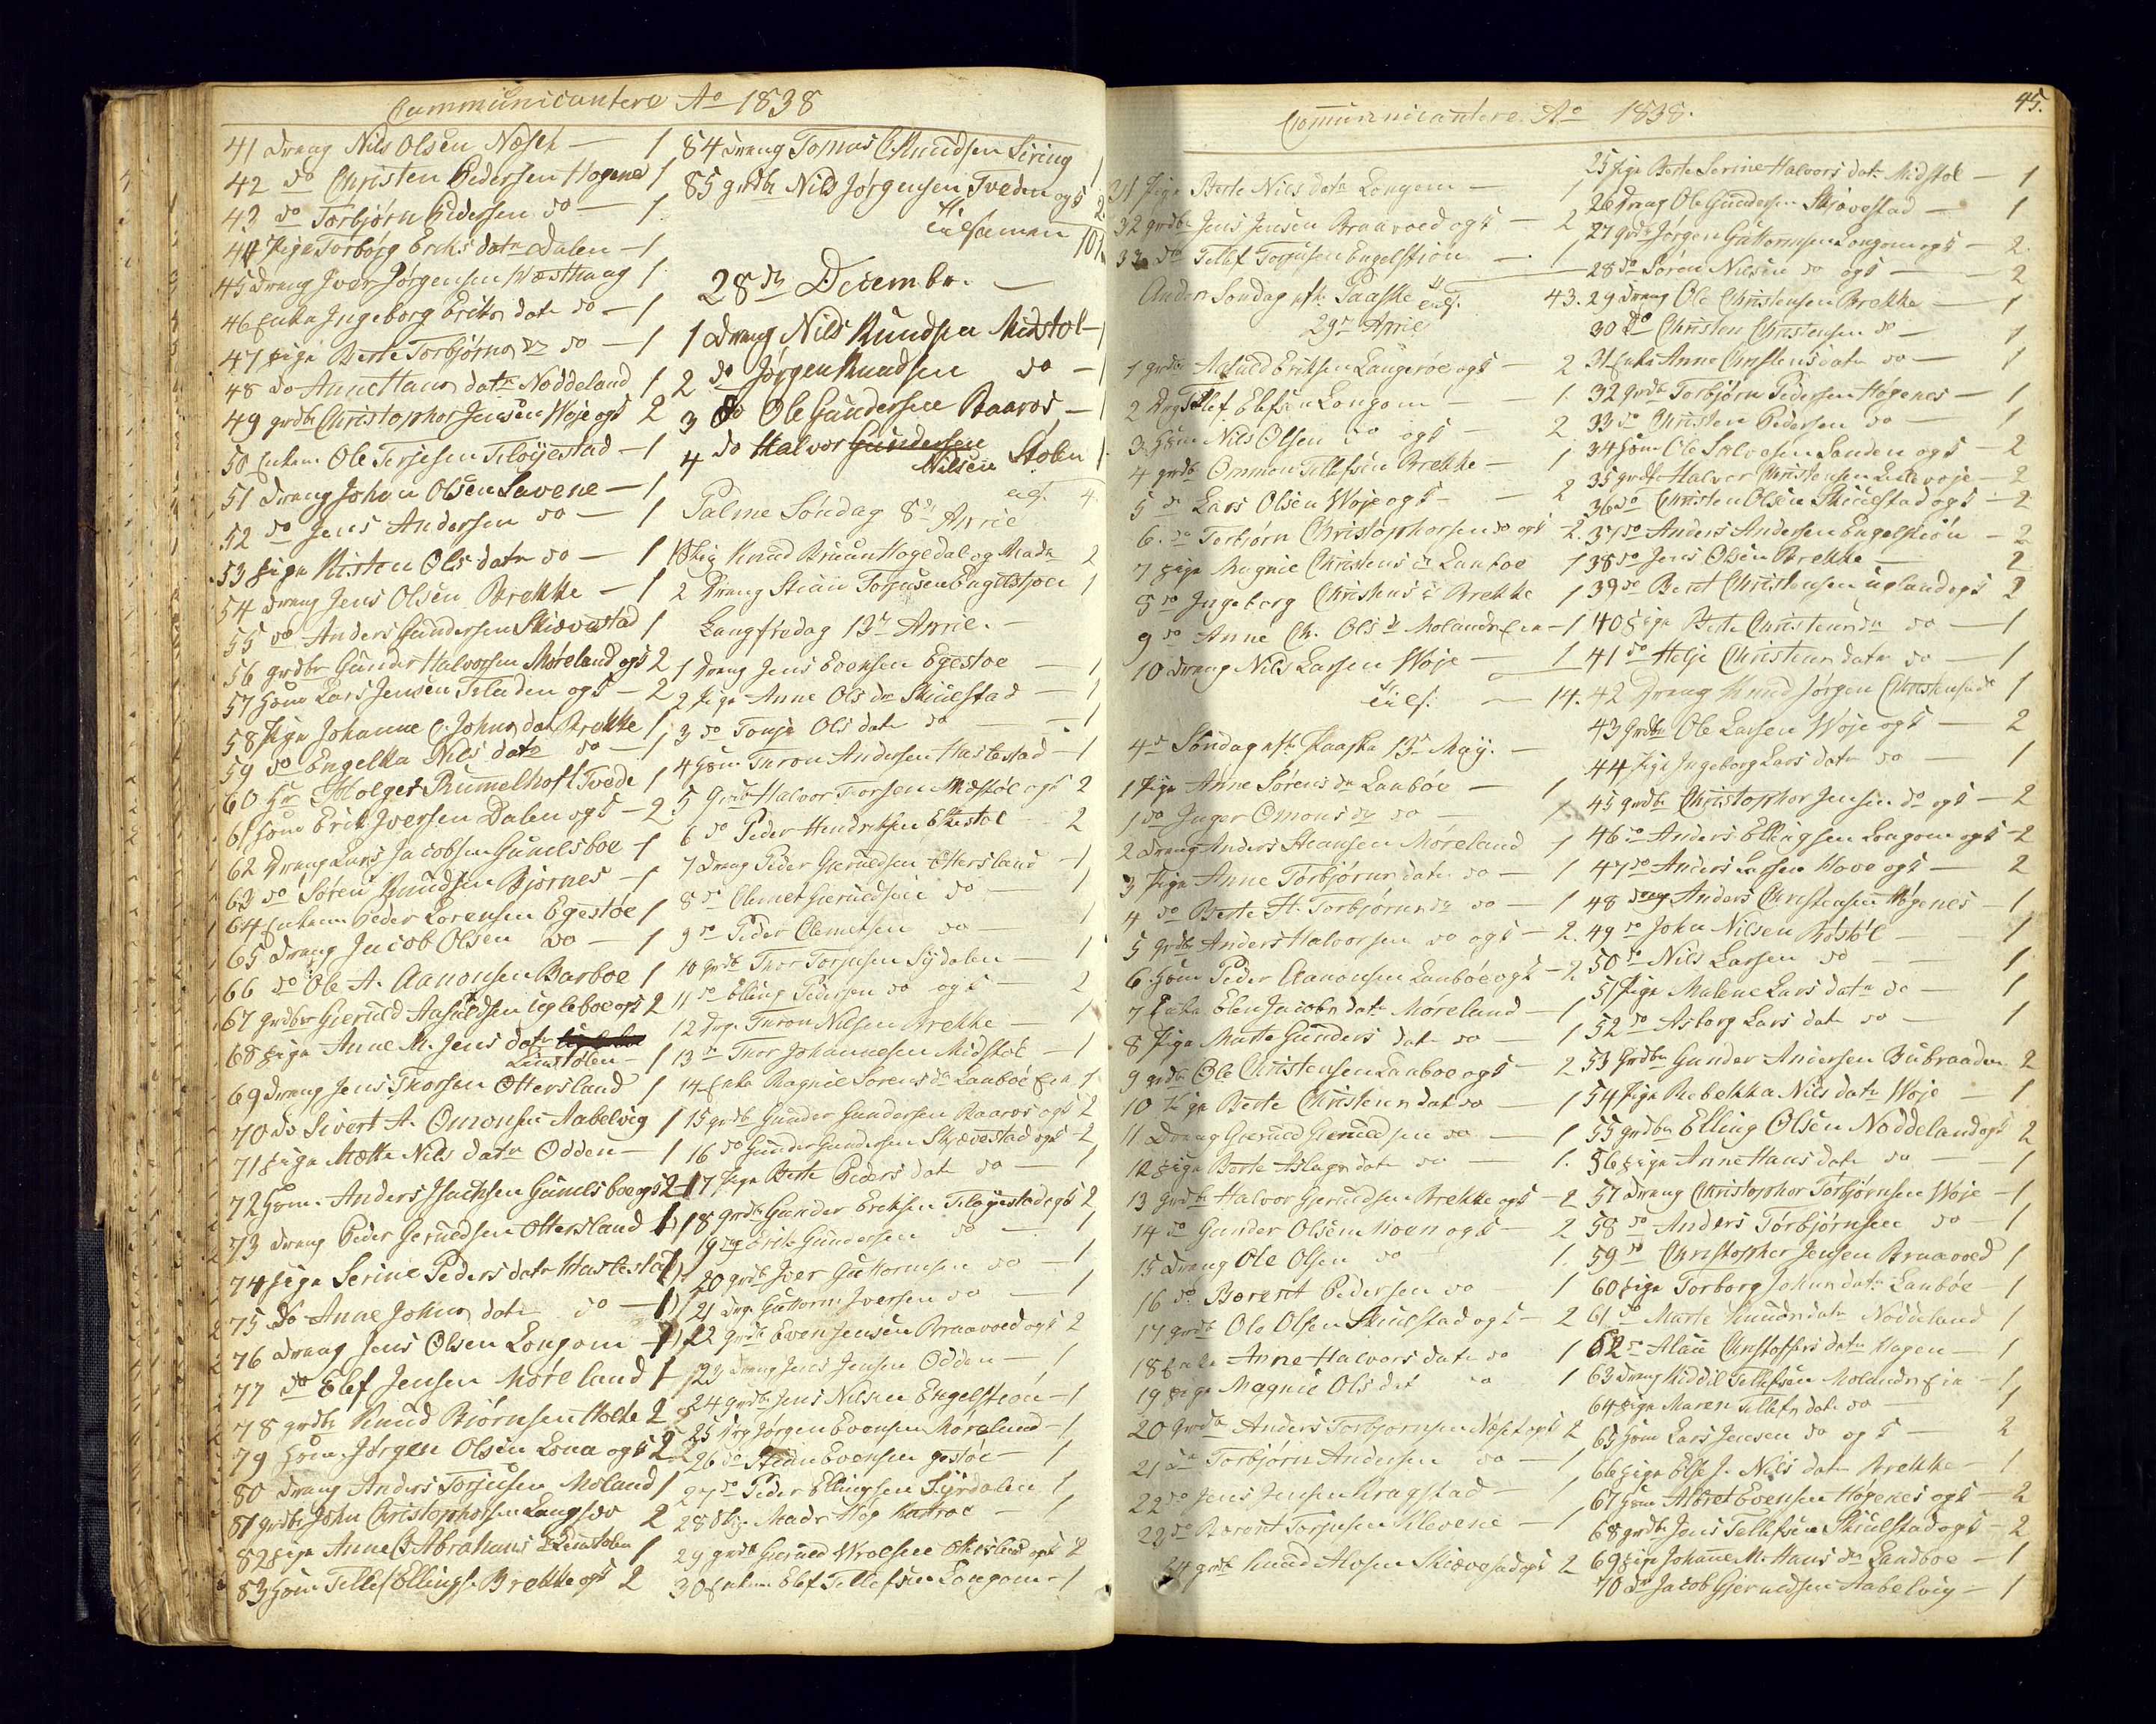 Communicantere Ao 1838
41 Drang Nils Olsen Næset — 1
42 do Christen Pedersen Høgenes 1
43 do Torbjørn Pedersen do — 1
44 Pige Torborg Eriks datr Dalen — 1
45 Drang Iver Jørgensen Westhaag 1
46 Enka Ingeborg Eriks datr do — 1
47 Pige Berte Torbjørns dr do — 1
48 do Anne Hans datr Noddeland 1
49 grdbr Christopher Jensen Woje ogs 2
50 Enkem. Ole Terjesen Tiløjestad — 1
51 Drang Johan Olsen Savene — 1
52 do Jens Andersen do — 1
53 Pige Kisten Ols datr do — 1
54 Drang Jens Olsen Brekke — 1
55 do Anders Gundersen Skiævestad 1
56 grdbr Gunder Halvorsen Møreland ogs 2
57 Huusm Lars Jensen ogs — 2
58 Pige Johanne C. Johns dat Brekke 1
59 do Engelka Nils datr do — 1
60 Hr Holger Rumelhoft Tvede 1
61 Huusm Erik Iversen Dalen ogs — 2
62 Drang Lars Jacobsen Gunelsboe 1
63 do Søren Knudsen Bjørnes — 1
64 Enkem Peder Lorensen Egestøe 1
65 Drang Jacob Olsen do — 1
66 do Ole A. Aanonsen Barboe 1
67 grdbr Gieruld Aasuldsen Ugleboe ogs 2
68 Pige Anne M. Jens datr
Linstølen — 1
69 Drang Jens Thorsen Ottersland 1
70 do Sivert A. Omonsen Aabelvig 1
71 Pige Mette Nils datr Odden — 1
72 Huusm. Anders Isachsen Gunelsboe ogs 2
73 Drang Peder Gieruldsen Ottersland 1
74 Pige Serine Peders datr Hastestad 1
75 do Anne Johns datr do — 1
76 Drang Jens Olsen Longom — 1
77 do Elef Jensen Møreland 1
78 grdbr Knud Bjørnsen Holte 2
79 Huusm. Jørgen Olsen Lona ogs 2
80 Drang Anders Torjusen Moland 1
81 grdbr John Christophersen Langsæe 2
82 Pige Anne B Abrahams dr Linstølen 1
83 Huusm Tellef Ellings. Brekke ogs 2
84 Drang Tomas C. Knudsen Siring 1
85 grdbr Nils Jørgensen Tveden ogs 2
Tilsamen 101
28de Decembr. —
1 Drang Nils Knudsen Midstøl — 1
2 do Jørgen Knudsen do — 1
3 do Ole Gundersen Baarøs — 1
4 do Halvor Gundersen
Nilsen Stølen 1
tils. 4.
Palme Søndag 8de April
1 Knud Bruun Hagedal og Madm 2
2 Drang Stian Torjusen Engelstjøn 1
Langfredag 13de April. —
1 Drang Jens Evensen Egestøe — 1
2 Pige Anne Ols dr Skiulestad — 1
3 do Tonje Ols datr do — 1
4 Huusm Tarou Andersen Hastestad — 1
5 Grdbr Halvor Torsen Midstøl ogs 2
6 do Peder Hendriksen Ekestøl — 2
7 Drang Peder Gieruldsen Ottersland — 1
8 do Clemet Gieruldsen do — 1
9 do Peder Clemetsen do — 1
10 grdbr Thor Torjusen Sydalen — 1
11 do Elling Pedersen do ogs — 2
12 Drg. Taron Nilsen Brekke — 1
13 do Thor Johannesen Midstøl — 1
14 Enke Ragnil Sørens dr Lanbøe Eie 1
15 grdbr Gunder Gundersen Baarøs ogs 2
16 do Gunder Gundersen Skiævestad ogs 2
17 Pige Berte Peders datr do — 1
18 grdbr Gunder Eriksen Tiløjestad ogs 2
19 drg Erik Gundersen do — 1
20 grdbr Iver Guttormsen do — 1
21 Drg Guttorm Iversen do — 1
22 grdbr Even Jensen Braavoed ogs 2
23 Drang Jens Jensen Odden — 1
24 grdbr Jens Nilsen Engelstiøn — 1
25 Drg Jørgen Evensen Møreland — 1
26 do Stian Evensen gestøe — 1
27 do Peder Ellingsen Syrdalen 1
28 Mads Høg — 1
29 grdbr Gieruld Wrolsen Ottersland ogs 2
30 Enkem Elef Tellefsen Longom — 1
Communicantere Ao 1838.
45.
31 Pige Berte Nils datr Longom — 1
32 grdbr Jens Jensen Braavoed ogs — 2
33 do Tellef Torjusen Engelstiøn — 1
tils. 43.
Anden Søndag eft. Paaske
29de April
1 grdbr Aasuld Eriksen Langerøe ogs — 2
2 Drg Tellef Elefsen Longom — 1.
3 Huusm Nils Olsen do ogs — 2
4 grdbr Ommon Tellefsen Brekke — 1
5 do Lars Olsen Woje ogs — 2
6 do Torbjørn Christophersen do ogs — 2.
7 Pige Magnil Christens dr Lanboe 1
8 do Ingeborg Christens dr Brekke 1
9 do Anne Ch. Ols dr Molands Eie — 1
10 Drang Nils Larsen Woje — 1
tils. — 14.
4de Søndag eft. Paaske 13de Maÿ. —
1 Pige Anne Sørens dr Lanbøe — 1
1 do Inger Omons dr do — 1
2 Drang Anders Hansen Møreland 1
3 Pige Anne Torbjørns datr do — 1
4 do Berte H. Torbjørns dr do — 1
5 grdbr Anders Halvorsen do ogs — 2.
6 Huusm Peder Aanonsen Lanbøe ogs — 2
7 Enke Elen Jacobs datr Møreland — 1
8 Pige Marte Gunders datr do — 1
9 grdbr Ole Christensen Lanboe ogs — 2
10 Pige Berte Christens dat do — 1
11 Drang Gieruld Gieruldsen do — 1
12 Pige Berte Aslags datr do — 1.
13 Grdbr Halvor Gjeruldsen Brekke ogs — 2
14 do Gunder Olsen Moen ogs — 2
15 Drang Ole Olsen do 1.
16 do Berent Pedersen do 1
17 grdbr Ole Olsen Skiulestad ogs — 2
18 Enke Anne Halvors datr do 1
19 Pige Magnil Ols dat do 1
20 Grdbr Anders Torbjørnsen Næset ogs 2
21 do Torbjørn Andersen do — 1
22 do Jens Jensen Kragstad — 1
23 do Berent Torjusen Klevene — 1
24 grdbr Knud Alvsen Skiævestad ogs 2
25 Pige Berte Serine Halvors datr Midstøl — 1
26 Drang Ole Gundersen Skjævestad — 1
27 grdbr Jørgen Guttormsen Longom ogs — 2.
28 do Søren Nilsen do ogs — 2
29 Drang Ole Christensen Brekke — 1
30 do Christen Christensen do — 1
31 Enke Anne Christens datr do — 1
32 grdbr Torbjørn Pedersen Høgenes — 1
33 do Christen Pedersen do — 1
34 Huusm Ole Salvesen Sanden ogs — 2
35 grdbr Halvor Christensen Lillewoje — 2
36 do Christen Olsen Skiulestad ogs — 2
37 do Anders Andersen Engelstiøn — 2
38 do Jens Olsen Brekke — 2
39 do Berit Christensen Ugland ogs 2
40 Pige Berte Christens dr do — 1
41 do Helje Christens datr do — 1
42 Drang Knud Jørgen Christensen do 1
43 Grdbr Ole Larsen Woje ogs — 2
44 Pige Ingeborg Lars datr do — 1
45 grdbr Christopher Jensen do ogs — 2
46 do Anders Ellingsen Longom ogs — 2
47 do Anders Larsen Hove ogs — 2
48 Drng Anders Christensen Høgenes — 1
49 do John Nilsen Røstøl — 1
50 do Nils Larsen do — 1
51 Pige Malene Lars datr do — 1
52 do Asborg Lars datr do — 1
53 Grdbr Gunder Andersen Bubraaden 2
54 Pige Rebekka Nils datr Woje — 1
55 grdbr Elling Olsen Noddeland ogs 2
56 Pige Anne Hans datr do — 1
57 Drang Christopher Torbjørnsen Woje — 1
58 do Anders Tørbjørnsen do — 1
59 do Christopher Jensen Braavoed 1
60 Pige Torborg Johns datr Lanbøe — 1
61 do Marte Knuds datr Noddeland 1
62 do Alau Christoffers datr Hagen — 1
63 Drang Kiddil Tellefsen Molands Eie — 1
64 Pige Maren Tellefs datr do — 1
65 Huusm Lars Jensen do ogs — 2
66 Pige Else J. Nils datr Brekke — 1
67 Huusm Albret Evensen Høgenes ogs — 2
68 grdbr Jens Tellefsen Skiulestad ogs — 2
69 Pige Johane M. Hans dr Landboe — 1
70 do Jacob Gjeruldsen Aabelvig — 1